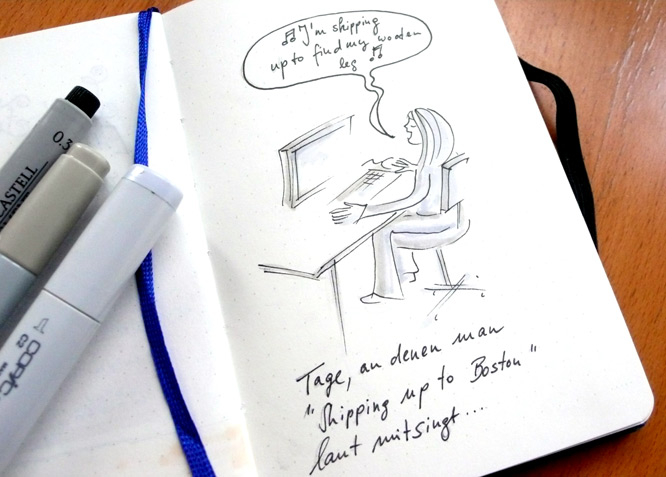 ♫ I'm shipping
up to find my wooden
leg ♫
Tage, an denen man
"Shipping up to Boston"
laut mitsingt...
0.3
CASTELL
COPIC